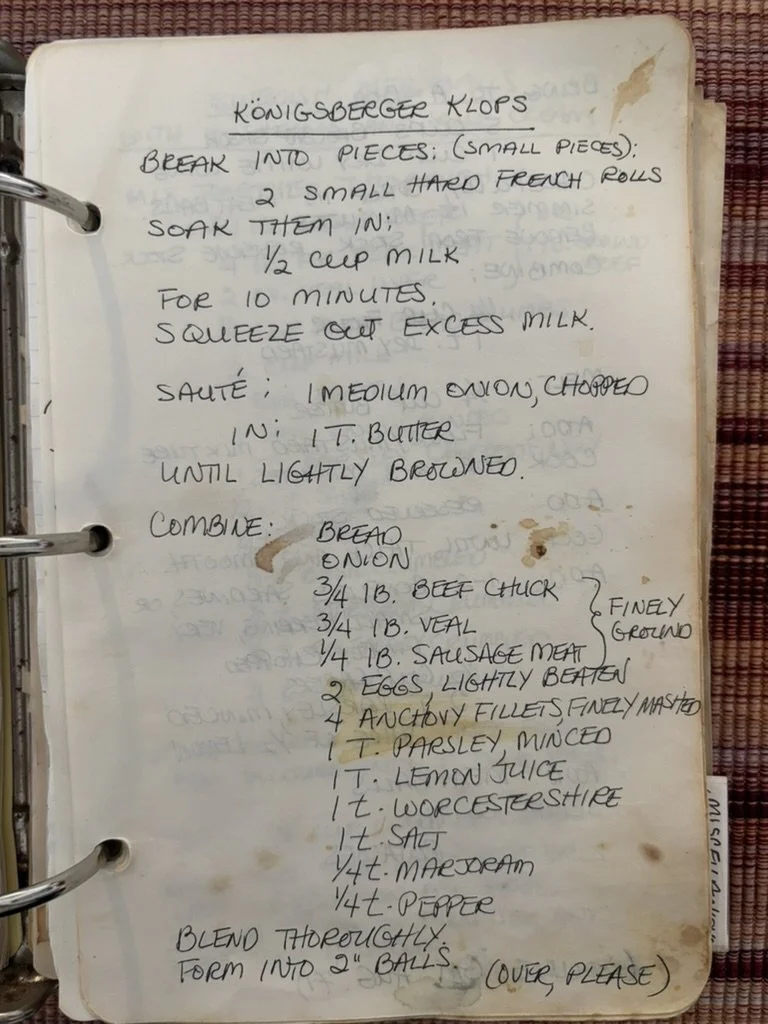 KÖNIGSBERGER KLOPS
BREAK INTO PIECES: (SMALL PIECES):
2 SMALL HARD FRENCH ROLLS
SOAK THEM IN:
1/2 CUP MILK
FOR 10 MINUTES.
SQUEEZE OUT EXCESS MILK.
SAUTÉ: 1 MEDIUM ONION, CHOPPED
IN: 1 T. BUTTER
UNTIL LIGHTLY BROWNED.
COMBINE: BREAD
ONION
3/4 lB. BEEF CHUCK
3/4 lB. VEAL
1/4 lB. SAUSAGE MEAT
} FINELY GROUND
2 EGGS, LIGHTLY BEATEN
4 ANCHOVY FILLETS, FINELY MASHED
1 T. PARSLEY, MINCED
1 T. LEMON JUICE
1 t. WORCESTERSHIRE
1 t. SALT
1/4 t. MARJORAM
1/4 t. PEPPER
BLEND THOROUGHLY.
FORM INTO 2" BALLS. (OVER, PLEASE)